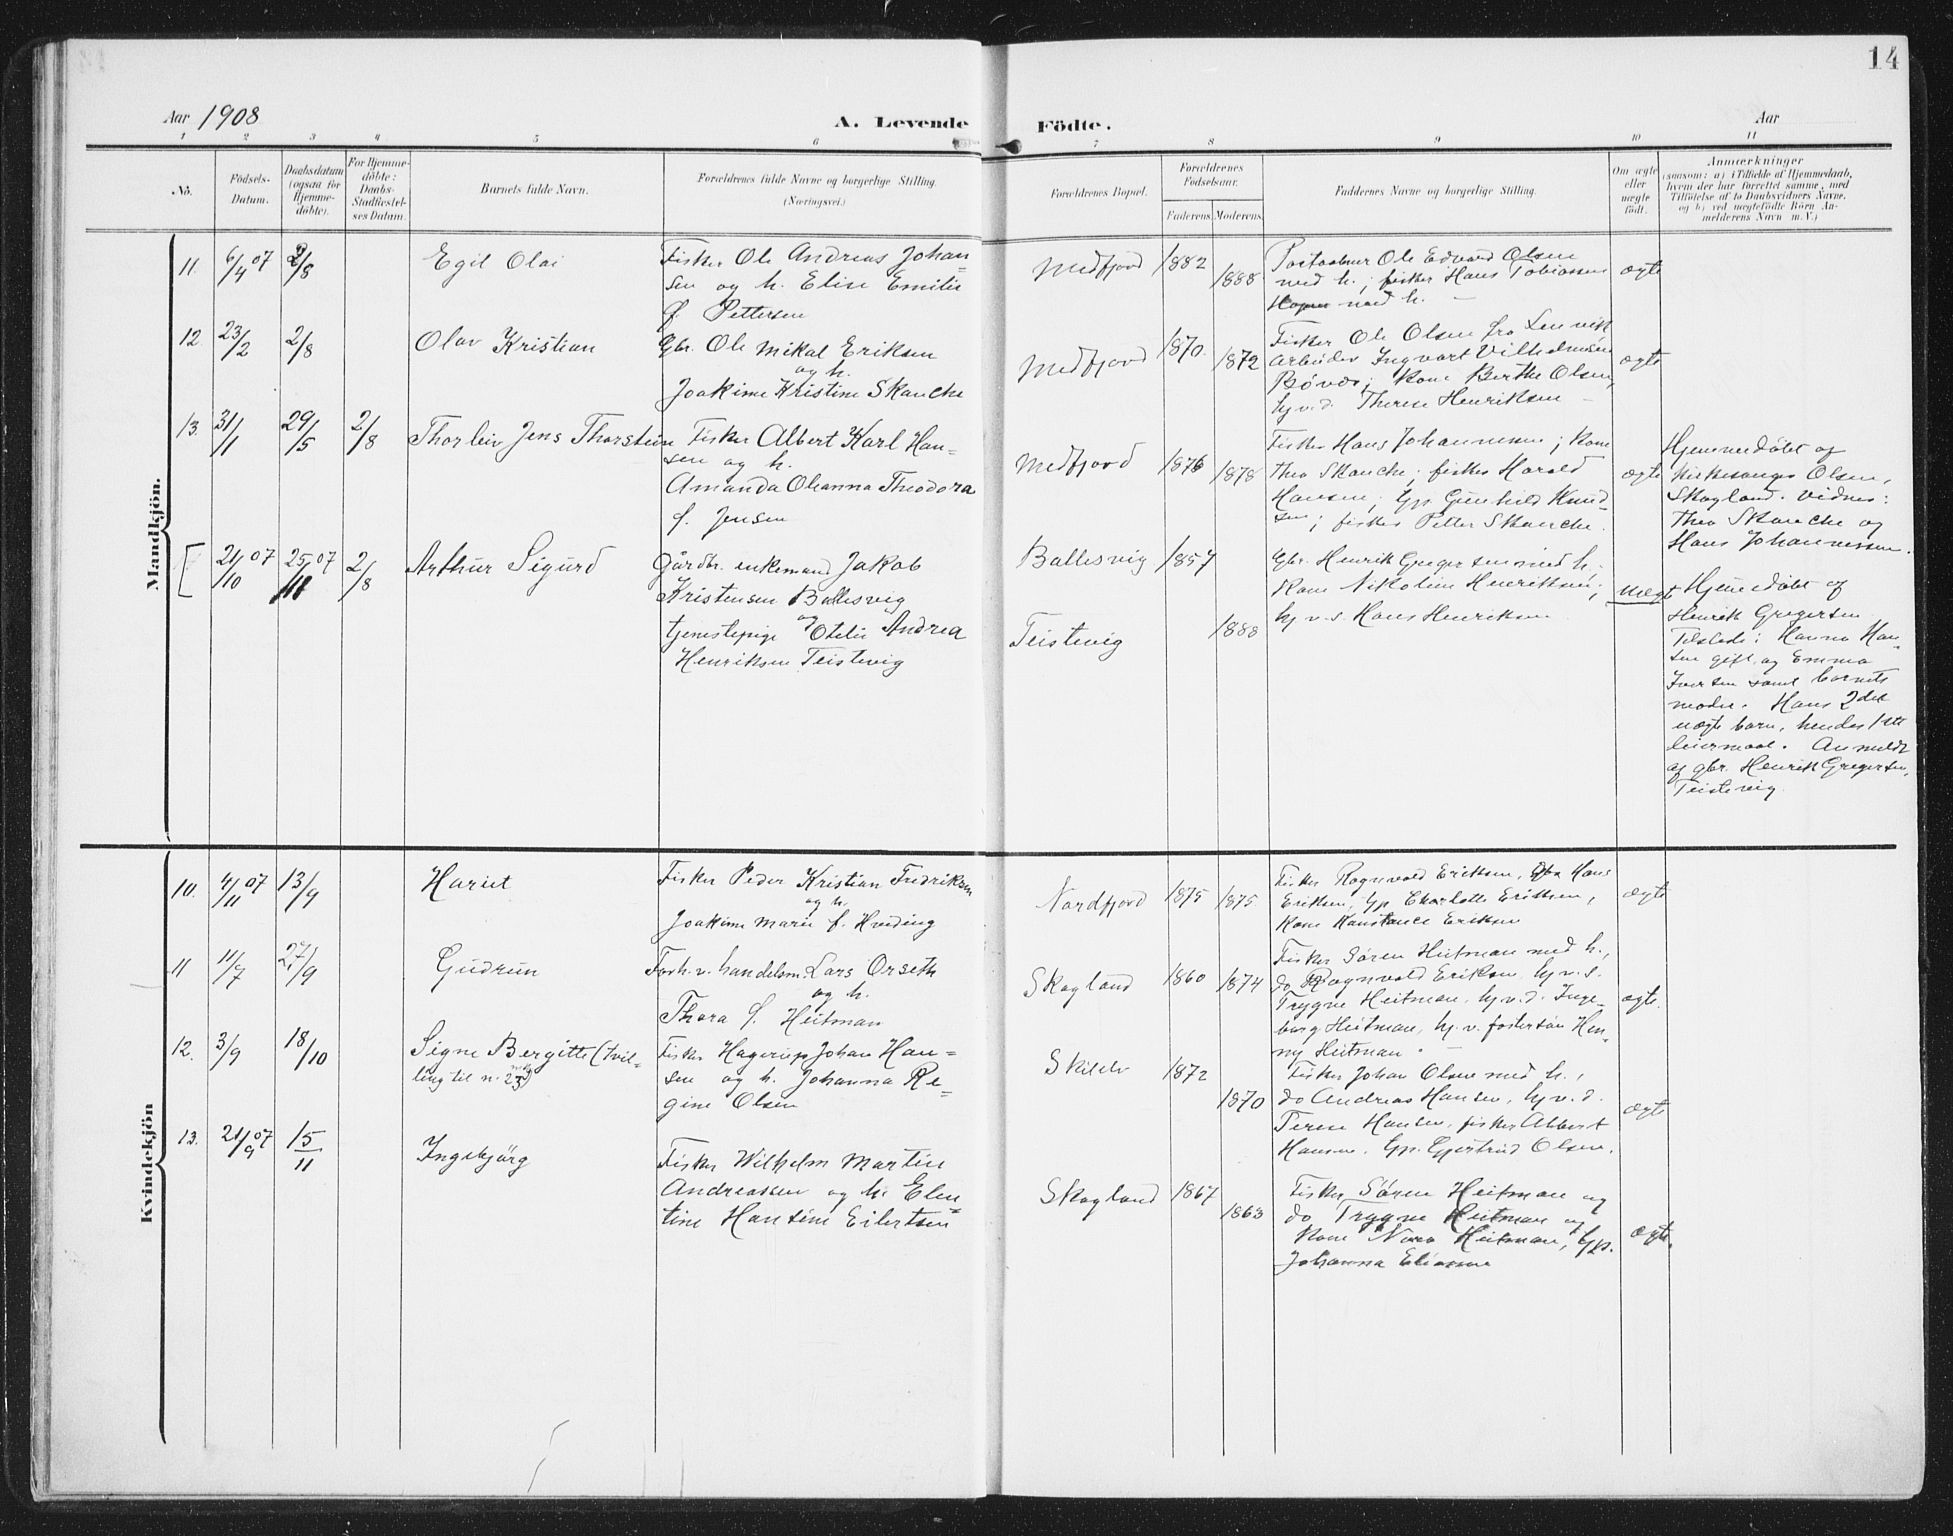 14
Aar 1908
A. Levende Födte.
Aar
1 2 3 4 5 6 7 8 9 10 11
No.
Födsels-
Datum.
Daabsdatum
(ogsaa for
Hjemme-
döbte).
For Hjemme-
döbte:
Daabs-
Stadfæstel-
ses Datum.
Barnets fulde Navn.
Forældrenes fulde Navne og borgerlige Stilling.
(Næringsvei.)
Forældrenes Bopæl.
Forældrenes
Födselsaar.
Faderens. Moderens.
Faddernes Navne og borgerlige Stilling.
Om ægte
eller
uægte
født.
Anmærkninger
(saasom: a) i Tilfælde af Hjemmedaab,
hvem der har forrettet samme, med
Tilföielse af to Daabsvidners Navne,
og b) ved uægtefödte Börn An-
melderens Navn m. V.)
Mandkjön.
11. 6/4 07 2/8
Egil Olai
Fisker Ole Andreas Johan-
sen og h. Elise Emilie
f. Pettersen
Medfjord 1882
1888
Postaabner Ole Edvard Olsen
med h.; fisker Hans Tobiassen
med h. —
ægte
12 23/2 2/8
Olav Kristian
Gbr. Ole Mikal Eriksen
og h.
Joakime Kristine Skanche
Medfjord 1870.
1872
Fisker Ole Olsen fra Lenvik
Arbeider Ingvart Vilhelmsen
Bövær; Kone Berthe Olsen,
hj. v. d. Therese Henriksen —
ægte
13. 31/1 29/5 2/8
Thorleiv Jens Thorstein
Fisker Albert Karl Han-
sen og h.
Amanda Oleanna Theodora
f. Jensen
Medfjord 1876
1878
Fisker Hans Johannesen; Kone
Thea Skanche; fisker Harald
Hansen; Gp. Gunhild Knud-
sen; fisker Petter Skanche.
ægte
Hjemmedöbt af
Kirkesanger Olsen,
Skagland. Vidner:
Thea Skanche og
Hans Johannessen.
21/10 07 25/11 07 2/8
Arthur Sigurd
Gårdbr. enkemand Jakob
Kristensen Ballesvig
og
tjenestepige Otelie Andrea
Henriksen Teistevig
Ballesvig 1857
Teistevig
1888
Gbr. Henrik Gregersen med h.
Kone Nikoline Henriksen;
hj. v. s. Hans Henriksen
uægt
Hjemedöbt af
Henrik Gregersen
Tilstede: Hanna Han-
sen gift, og Emma
Iversen samt barnets
moder. Hans 2det
uægte barn, hendes 1ste
leiermaal. Anmeldt
af gbr. Henrik Gregersen,
Teistevig.
Kvindekjön
10. 4/11 07 13/9
Hariet
Fisker Peder Kristian Fredriksen
og h.
Joakime Marie f. Hveding
Nordfjord 1875 1875
Fisker Ragnvald Eriksen, Gbr Hans
Eriksen, Gp. Charlotte Eriksen,
Kone Konstance Eriksen
ægte
11 11/7 27/9
Gudrun
Forh. v. handelsm. Lars Orseth
og h.
Thora f. Heitman
Skagland 1860 1874
Fisker Sören Heitman med h.,
do Ragnvald Eriksen, hj. v. s.
Trygve Heitman, hj. v. d. Inge-
borg Heitman, hj. v. fostersön Hen-
ny Heitman. —
ægte.
12. 3/9 18/10
Signe Bergitte (tvil-
ling til n. 23)
Fisker Hagerup Johan Han-
sen og h. Johanna Re-
gine Olsen
1872
1870
Fisker Johan Olsen med h.,
do Andreas Hansen, hj. v. d.
Terese Hansen, fisker Albert
Hansen. Gp. Gjertrud Olsen.
ægte
13. 21/9 07 15/11
Ingebjörg
Fisker Wilhelm Martin
Andreassen og h. Elen-
tine Hansine Eilertsen
Skagland 1867
1863
Fisker Sören Heitman og
do Trygve Heitman og
Kone Nora Heitman, Gp.
Johanna Eliasen
ægte.